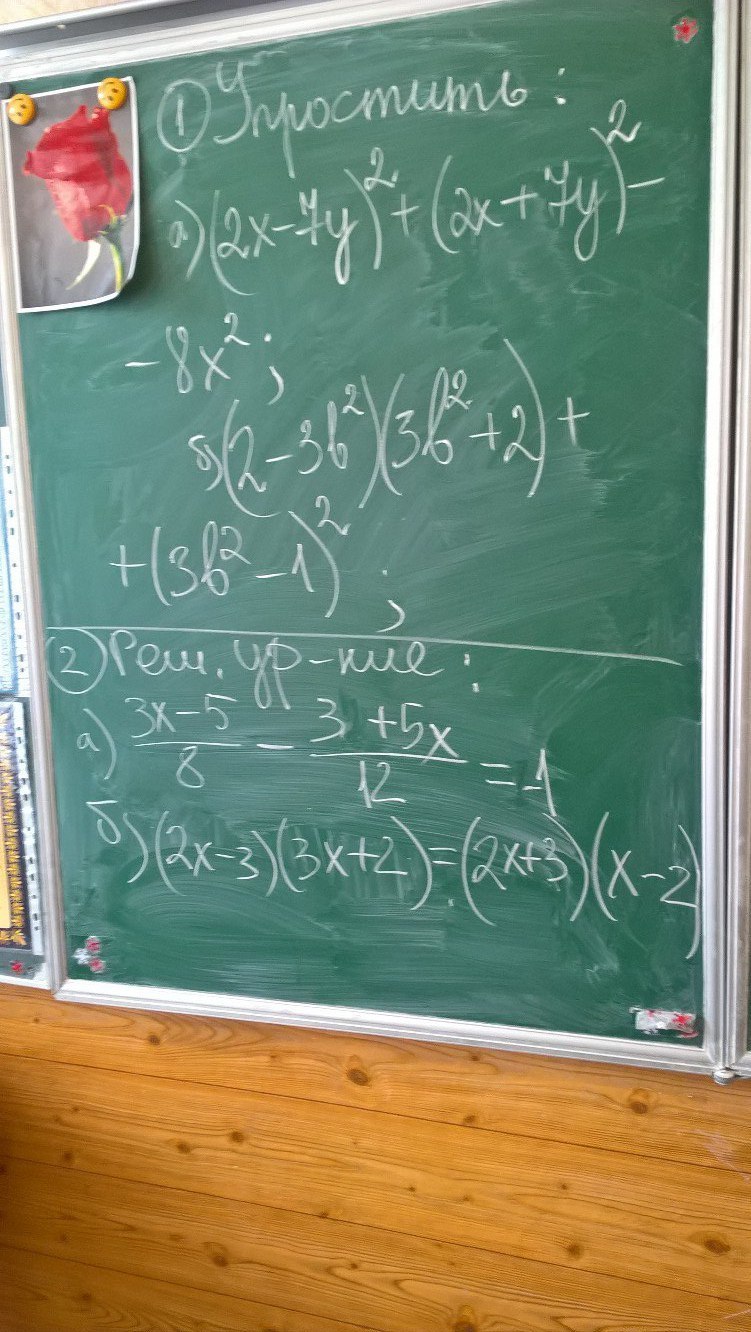 ① Упростить:
а) (2x-7y)² + (2x+7y)² -
- 8x²;
б) (2-3b²)(3b²+2) +
+ (3b²-1)²;
② Реш. ур-ние:
а) \frac{3x-5}{8} - \frac{3+5x}{12} = -1
б) (2x-3)(3x+2) = (2x+3)(x-2)